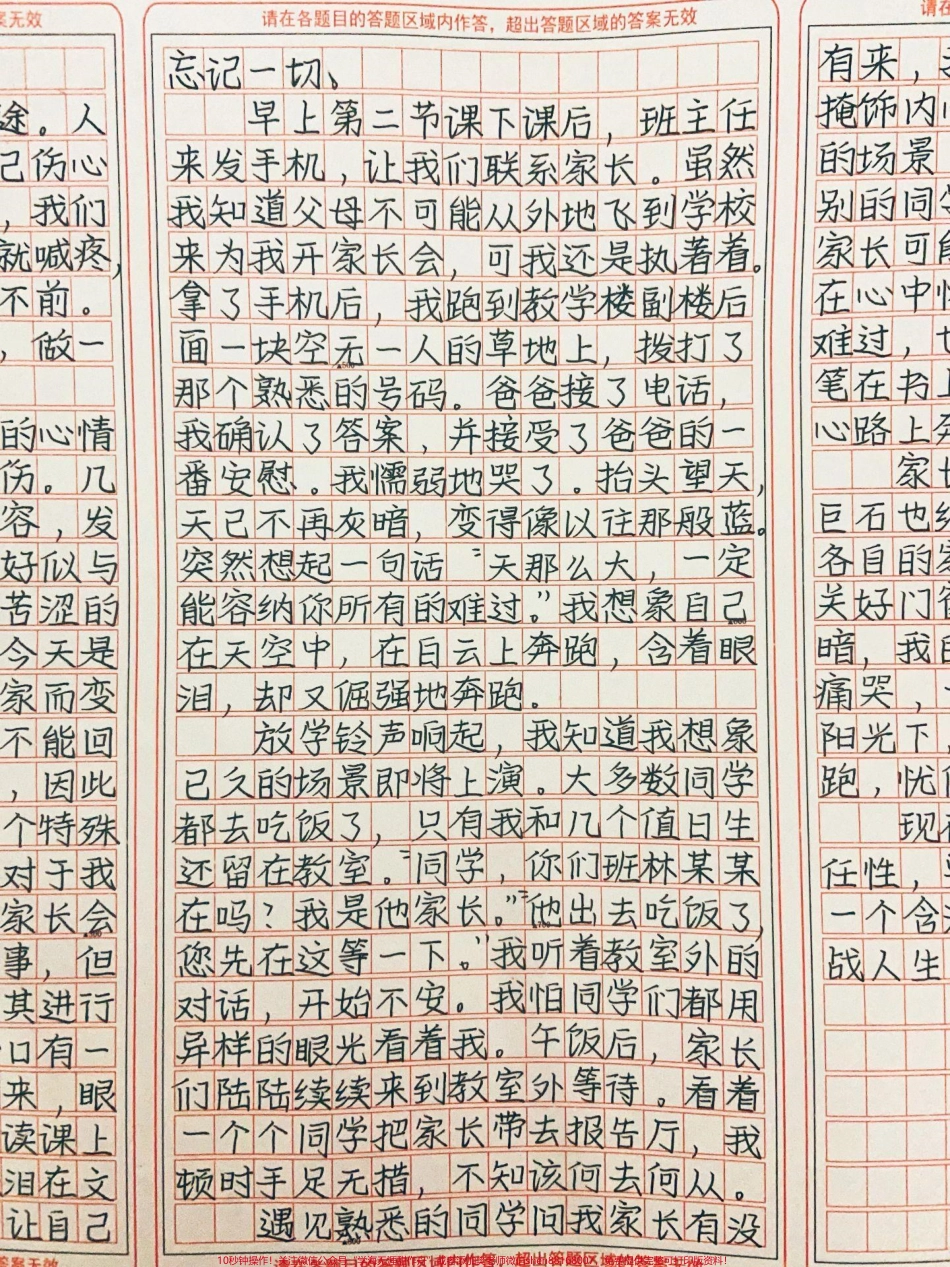 案无效
途。人
己伤心
，我们
就喊疼，
不前。
，做一
的心情
伤。几
容，发
好似与
苦涩的
今天是
家而变
不能回
，因此
个特殊
对于我
家长会
事，但
其进行
口有一
来，眼
读课上
泪在文
让自己
请在各题目的答题区域内作答，超出答题区域的答案无效
忘记一切、
早上第二节课下课后，班主任
来发手机，让我们联系家长。虽然
我知道父母不可能从外地飞到学校
来为我开家长会，可我还是执著着。
拿了手机后，我跑到教学楼副楼后
面一块空无一人的草地上，拨打了
那个熟悉的号码。爸爸接了电话，
我确认了答案，并接受了爸爸的一
番安慰。我懦弱地哭了。抬头望天，
天已不再灰暗，变得像以往那般蓝。
突然想起一句话“天那么大，一定
能容纳你所有的难过。”我想象自己
在天空中，在白云上奔跑，含着眼
泪，却又倔强地奔跑。
放学铃声响起，我知道我想象
已久的场景即将上演。大多数同学
都去吃饭了，只有我和几个值日生
还留在教室。“同学，你们班林某某
在吗？我是他家长。”“他出去吃饭了，
您先在这等一下。”我听着教室外的
对话，开始不安。我怕同学们都用
异样的眼光看着我。午饭后，家长
们陆陆续续来到教室外等待。看着
一个个同学把家长带去报告厅，我
顿时手足无措，不知该何去何从。
遇见熟悉的同学问我家长有没
请在
有来，
掩饰内
的场景
别的同
家长可能
在心中
难过，
笔在书
心路上
家长
巨石也
各自的
关好门
暗，我
痛哭，
阳光下
跑，忧
现在
任性，
一个含
战人生